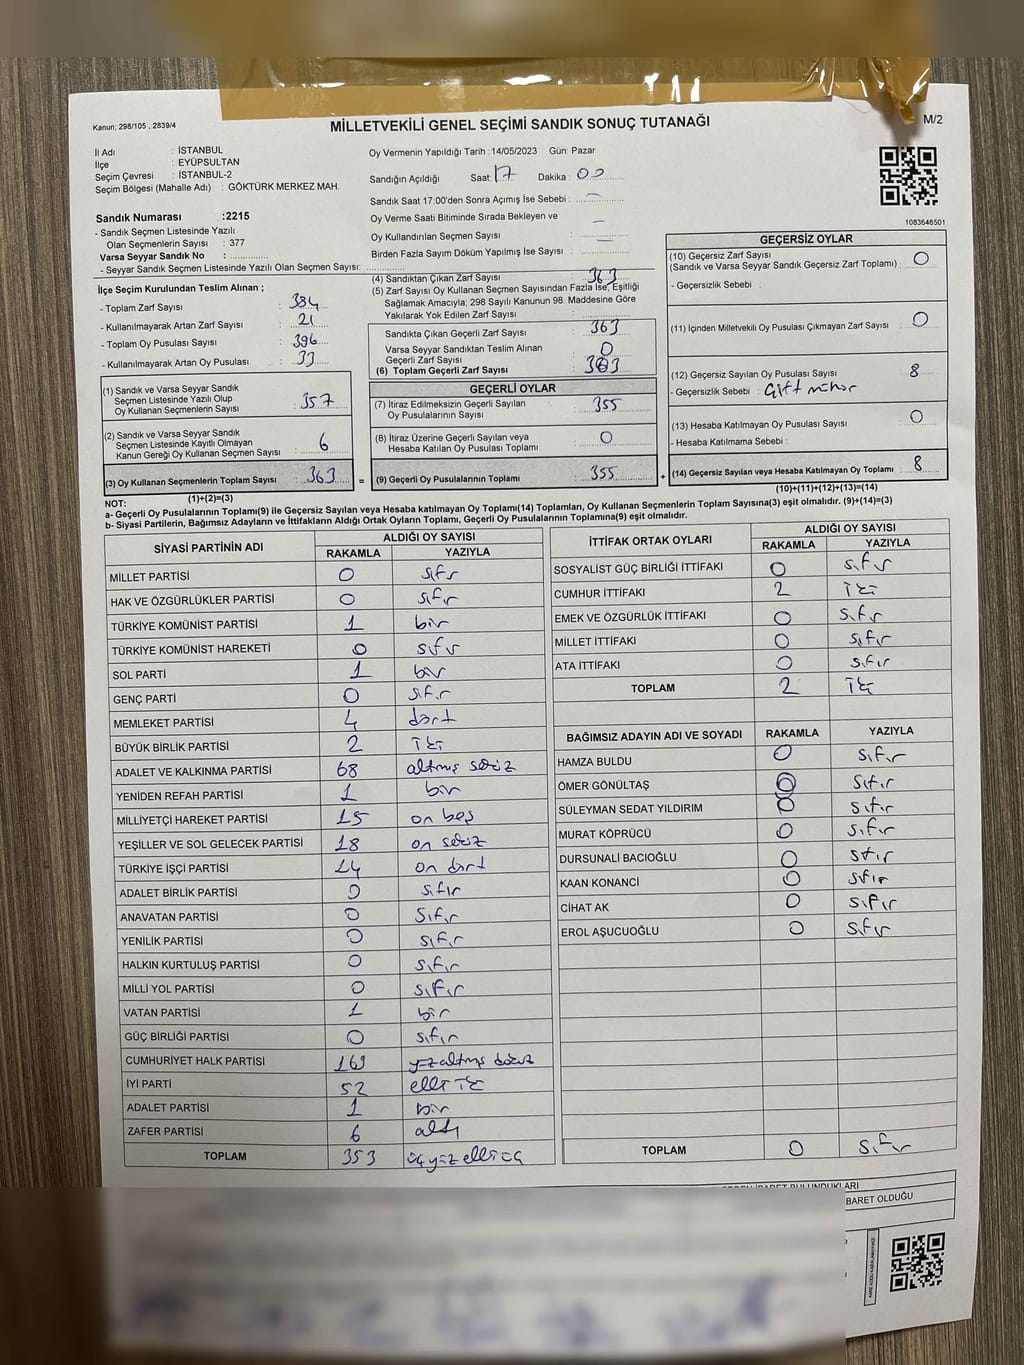 Kanun; 298/105 , 2839/4
MİLLETVEKİLİ GENEL SEÇİMİ SANDIK SONUÇ TUTANAĞI
M/2
İl Adı : İSTANBUL
İlçe : EYÜPSULTAN
Seçim Çevresi : İSTANBUL-2
Seçim Bölgesi (Mahalle Adı) : GÖKTÜRK MERKEZ MAH.
Sandık Numarası :2215
- Sandık Seçmen Listesinde Yazılı
Olan Seçmenlerin Sayısı : 377
Varsa Seyyar Sandık No :
- Seyyar Sandık Seçmen Listesinde Yazılı Olan Seçmen Sayısı:
İlçe Seçim Kurulundan Teslim Alınan ;
- Toplam Zarf Sayısı : 384
- Kullanılmayarak Artan Zarf Sayısı : 21
- Toplam Oy Pusulası Sayısı : 396
- Kullanılmayarak Artan Oy Pusulası : 33
(1) Sandık ve Varsa Seyyar Sandık
Seçmen Listesinde Yazılı Olup
Oy Kullanan Seçmenlerin Sayısı : 357
(2) Sandık ve Varsa Seyyar Sandık
Seçmen Listesinde Kayıtlı Olmayan
Kanun Gereği Oy Kullanan Seçmen Sayısı : 6
(3) Oy Kullanan Seçmenlerin Toplam Sayısı : 363
(1)+(2)=(3)
Oy Vermenin Yapıldığı Tarih :14/05/2023 Gün: Pazar
Sandığın Açıldığı Saat: 17 Dakika : 00
Sandık Saat 17:00'den Sonra Açımış İse Sebebi :
Oy Verme Saati Bitiminde Sırada Bekleyen ve
Oy Kullandırılan Seçmen Sayısı :
Birden Fazla Sayım Döküm Yapılmış İse Sayısı :
(4) Sandıktan Çıkan Zarf Sayısı : 363
(5) Zarf Sayısı Oy Kullanan Seçmen Sayısından Fazla İse, Eşitliği
Sağlamak Amacıyla; 298 Sayılı Kanunun 98. Maddesine Göre
Yakılarak Yok Edilen Zarf Sayısı :
Sandıkta Çıkan Geçerli Zarf Sayısı : 363
Varsa Seyyar Sandıktan Teslim Alınan
Geçerli Zarf Sayısı : 0
(6) Toplam Geçerli Zarf Sayısı : 363
GEÇERLİ OYLAR
(7) İtiraz Edilmeksizin Geçerli Sayılan
Oy Pusulalarının Sayısı : 355
(8) İtiraz Üzerine Geçerli Sayılan veya
Hesaba Katılan Oy Pusulası Toplamı : 0
= (9) Geçerli Oy Pusulalarının Toplamı : 355 +
1083646501
GEÇERSİZ OYLAR
(10) Geçersiz Zarf Sayısı
(Sandık ve Varsa Seyyar Sandık Geçersiz Zarf Toplamı) : 0
- Geçersizlik Sebebi :
(11) İçinden Milletvekili Oy Pusulası Çıkmayan Zarf Sayısı : 0
(12) Geçersiz Sayılan Oy Pusulası Sayısı : 8
- Geçersizlik Sebebi : Çift mühür
(13) Hesaba Katılmayan Oy Pusulası Sayısı : 0
- Hesaba Katılmama Sebebi :
(14) Geçersiz Sayılan veya Hesaba Katılmayan Oy Toplamı : 8
(10)+(11)+(12)+(13)=(14)
NOT:
a- Geçerli Oy Pusulalarının Toplamı(9) ile Geçersiz Sayılan veya Hesaba katılmayan Oy Toplamı(14) Toplamları, Oy Kullanan Seçmenlerin Toplam Sayısına(3) eşit olmalıdır. (9)+(14)=(3)
b- Siyasi Partilerin, Bağımsız Adayların ve İttifakların Aldığı Ortak Oyların Toplamı, Geçerli Oy Pusulalarının Toplamına(9) eşit olmalıdır.
SİYASİ PARTİNİN ADI ALDIĞI OY SAYISI
RAKAMLA YAZIYLA
MİLLET PARTİSİ 0 sıfır
HAK VE ÖZGÜRLÜKLER PARTİSİ 0 sıfır
TÜRKİYE KOMÜNİST PARTİSİ 1 bir
TÜRKİYE KOMÜNİST HAREKETİ 0 sıfır
SOL PARTİ 1 bir
GENÇ PARTİ 0 sıfır
MEMLEKET PARTİSİ 4 dört
BÜYÜK BİRLİK PARTİSİ 2 iki
ADALET VE KALKINMA PARTİSİ 68 altmış sekiz
YENİDEN REFAH PARTİSİ 1 bir
MİLLİYETÇİ HAREKET PARTİSİ 15 on beş
YEŞİLLER VE SOL GELECEK PARTİSİ 18 on sekiz
TÜRKİYE İŞÇİ PARTİSİ 14 on dört
ADALET BİRLİK PARTİSİ 0 sıfır
ANAVATAN PARTİSİ 0 sıfır
YENİLİK PARTİSİ 0 sıfır
HALKIN KURTULUŞ PARTİSİ 0 sıfır
MİLLİ YOL PARTİSİ 0 sıfır
VATAN PARTİSİ 1 bir
GÜÇ BİRLİĞİ PARTİSİ 0 sıfır
CUMHURİYET HALK PARTİSİ 169 yüzaltmış dokuz
İYİ PARTİ 52 elli iki
ADALET PARTİSİ 1 bir
ZAFER PARTİSİ 6 altı
TOPLAM 353 üçyüz elli üç
İTTİFAK ORTAK OYLARI ALDIĞI OY SAYISI
RAKAMLA YAZIYLA
SOSYALİST GÜÇ BİRLİĞİ İTTİFAKI 0 sıfır
CUMHUR İTTİFAKI 2 iki
EMEK VE ÖZGÜRLÜK İTTİFAKI 0 sıfır
MİLLET İTTİFAKI 0 sıfır
ATA İTTİFAKI 0 sıfır
TOPLAM 2 iki
BAĞIMSIZ ADAYIN ADI VE SOYADI RAKAMLA YAZIYLA
HAMZA BULDU 0 sıfır
ÖMER GÖNÜLTAŞ 0 sıfır
SÜLEYMAN SEDAT YILDIRIM 0 sıfır
MURAT KÖPRÜCÜ 0 sıfır
DURSUNALİ BACIOĞLU 0 sıfır
KAAN KONANCİ 0 sıfır
CİHAT AK 0 sıfır
EROL AŞUCUOĞLU 0 sıfır
TOPLAM 0 sıfır
BARET OLDUĞU